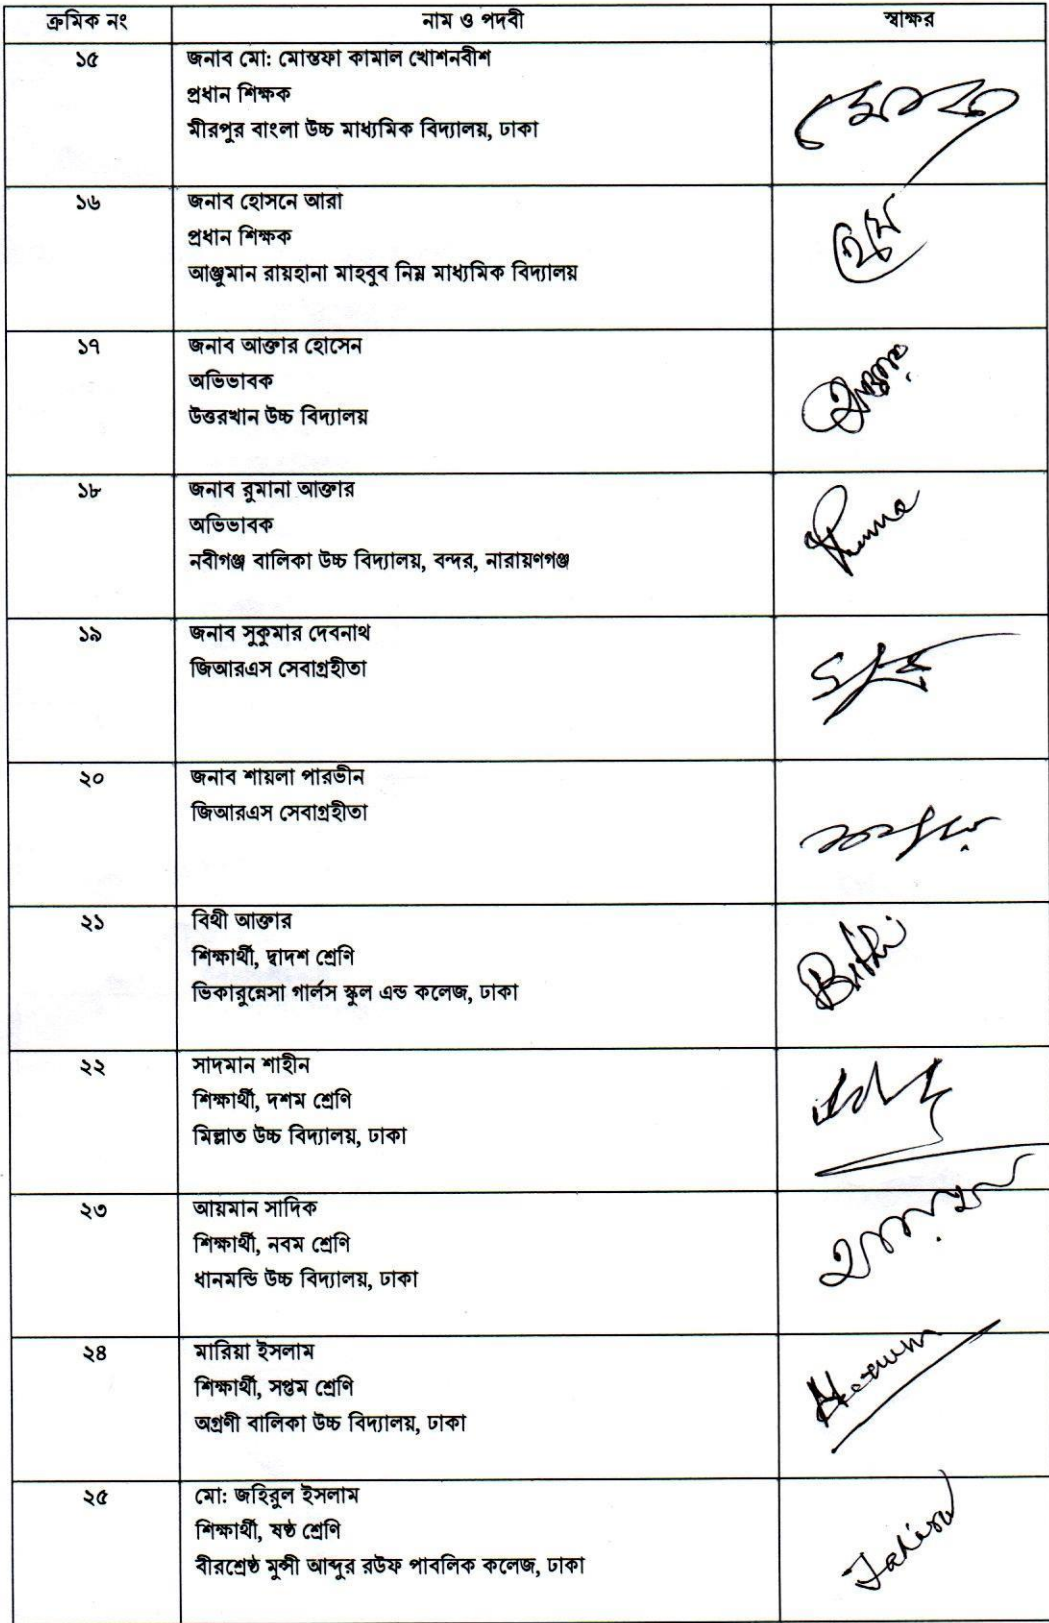 ক্রমিক নং নাম ও পদবী স্বাক্ষর
১৫ জনাব মো: মোস্তফা কামাল খোশনবীশ
প্রধান শিক্ষক
মীরপুর বাংলা উচ্চ মাধ্যমিক বিদ্যালয়, ঢাকা
১৬ জনাব হোসনে আরা
প্রধান শিক্ষক
আঞ্জুমান রায়হানা মাহবুব নিম্ন মাধ্যমিক বিদ্যালয়
১৭ জনাব আক্তার হোসেন
অভিভাবক
উত্তরখান উচ্চ বিদ্যালয়
১৮ জনাব রুমানা আক্তার
অভিভাবক
নবীগঞ্জ বালিকা উচ্চ বিদ্যালয়, বন্দর, নারায়ণগঞ্জ
১৯ জনাব সুকুমার দেবনাথ
জিআরএস সেবাগ্রহীতা
২০ জনাব শায়লা পারভীন
জিআরএস সেবাগ্রহীতা
২১ বিথী আক্তার
শিক্ষার্থী, দ্বাদশ শ্রেণি
ভিকারুন্নেসা গার্লস স্কুল এন্ড কলেজ, ঢাকা
Bithi
২২ সাদমান শাহীন
শিক্ষার্থী, দশম শ্রেণি
মিল্লাত উচ্চ বিদ্যালয়, ঢাকা
২৩ আয়মান সাদিক
শিক্ষার্থী, নবম শ্রেণি
ধানমন্ডি উচ্চ বিদ্যালয়, ঢাকা
২৪ মারিয়া ইসলাম
শিক্ষার্থী, সপ্তম শ্রেণি
অগ্রণী বালিকা উচ্চ বিদ্যালয়, ঢাকা
২৫ মো: জহিরুল ইসলাম
শিক্ষার্থী, ষষ্ঠ শ্রেণি
বীরশ্রেষ্ঠ মুন্সী আব্দুর রউফ পাবলিক কলেজ, ঢাকা